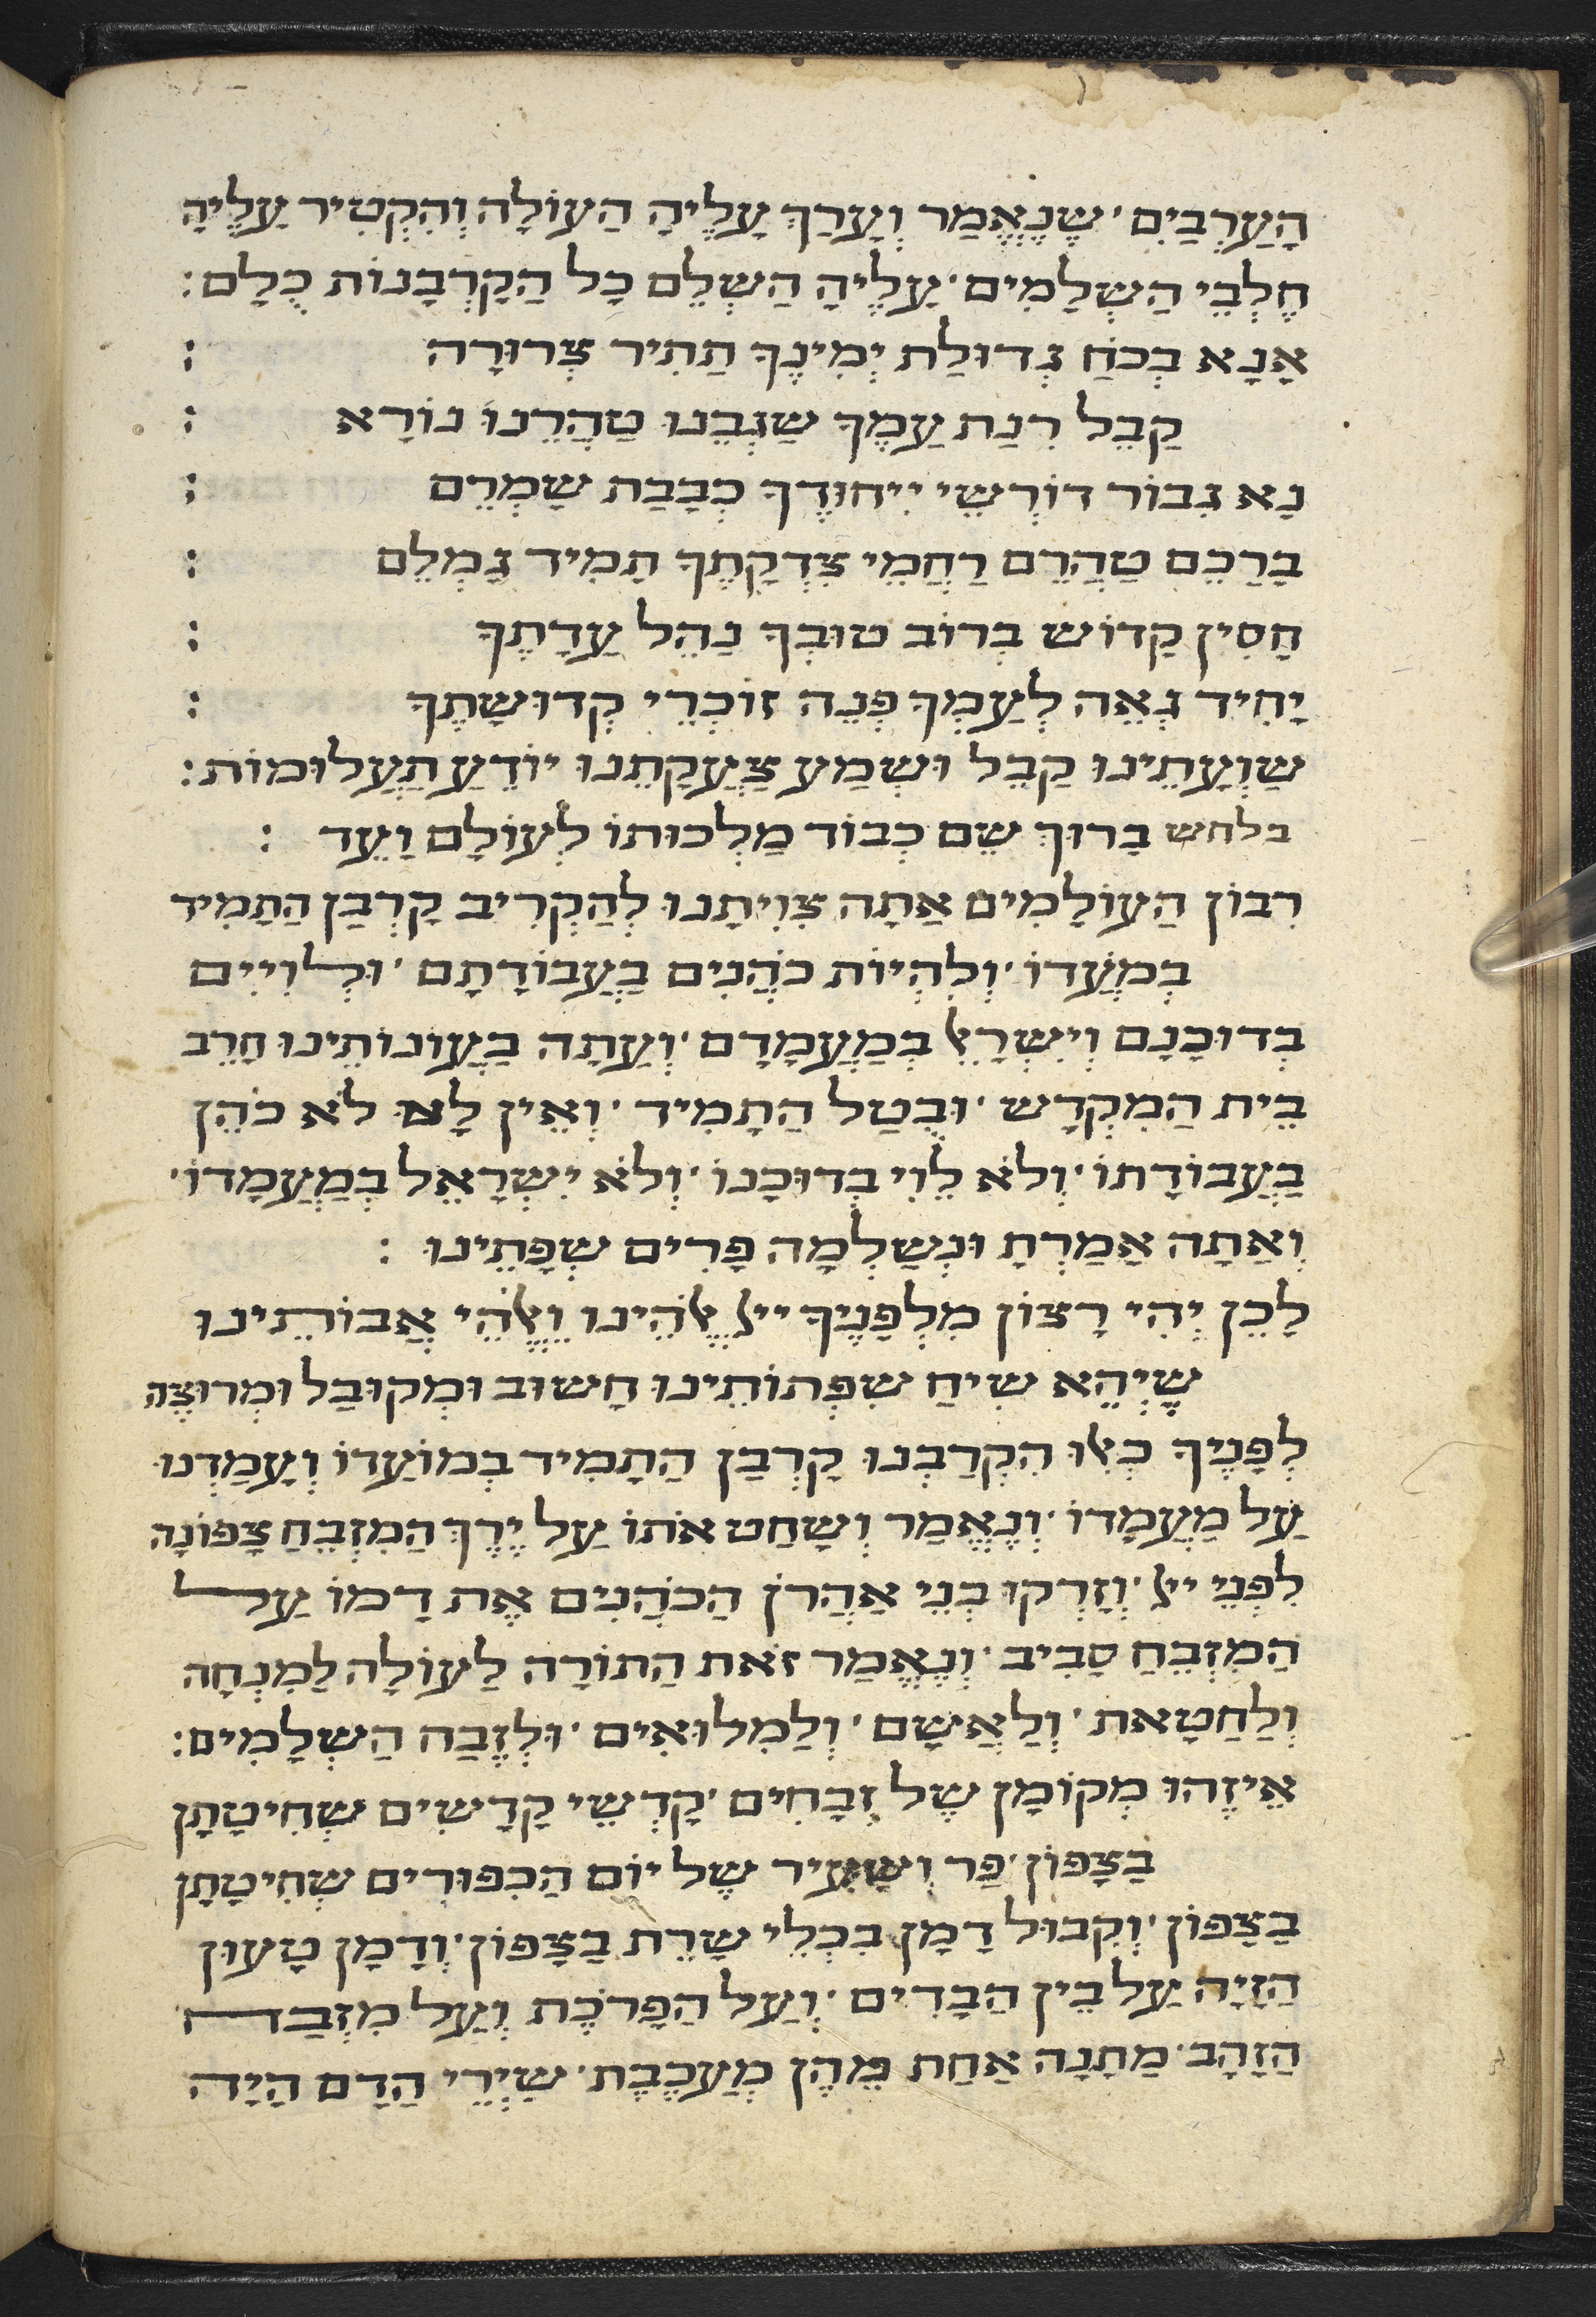 הָעַרְבַּיִם׳ שֶׁנֶאֱמַר וְעָרַךְ עָלֶיהָ הַעוֹלָה וְהִקְטִיר עָלֶיהָ
חֶלְבֵי הַשְׁלָמִים׳ עָלֶיהָ הַשְׁלֵם כָל הַקָרְבָנוֹת כֻלָם:
אָנָא בְכֹחַ גְדוּלַת יְמִינֶךָ תַתִיר צְרוּרָה :
קַבֵל רִנַת עַמֶךָ שַׂגְבֵנוּ טַהֲרֵנוּ נוֹרָא :
נָא גִבוֹר דוֹרְשֵי יִיחוּדֶךָ כְבָבַת שָׁמְרֵם :
בָרַכֵם טַהֲרֵם רַחֲמֵי צִדְקָתֶךָ תָמִיד גָמְלֵם :
חָסִין קָדוֹש בְרוֹב טוּבְךָ נַהֵל עַדָתֶךָ :
יָחִיד גְאֵה לְעַמְךָ פְנֵה זוֹכְרֵי קְדוּשָתֶךָ :
שַוְעָתֵינוּ קַבֵל וּשְמַע צַעֲקָתֵנוּ יוֹדֵעַ תַעֲלוּמוֹת:
בלחש בָרוּךְ שֵם כְבוֹד מַלְכוּתוֹ לְעוֹלָם וָעֵד :
רִבוֹן הַעוֹלָמִים אַתָה צִוִיתָנוּ לְהַקְרִיב קָרְבַן הַתָמִיד
בְמֹעֲדוֹ׳ וְלִהְיוֹת כֹהֲנִים בַעֲבוֹדָתָם׳ וּלְוִיִים
בְדוּכָנָם וְיִשְרָאֵל בְמַעֲמָדָם׳ וְעַתָה בַעֲוֹנוֹתֵינוּ חָרֵב
בֵית הַמִקְדָש׳ וּבֻטַל הַתָמִיד׳ וְאֵין לָנוּ לֹא כֹהֵן
בַעֲבוֹדָתוֹ׳ וְלֹא לֵוִי בְדוּכָנוֹ׳ וְלֹא יִשְרָאֵל בְמַעֲמָדוֹ׳
וְאַתָה אָמַרְתָ וּנְשַלְמָה פָרִים שְפָתֵינוּ :
לָכֵן יְהִי רָצוֹן מִלְפָנֶיךָ ייי אֱלֹהֵינוּ וֵאלֹהֵי אֲבוֹתֵינוּ
שֶיְהֵא שִיחַ שִפְתוֹתֵינוּ חָשוּב וּמְקוּבַל וּמְרוּצֶה
לְפָנֶיךָ כְאִלוּ הִקְרַבְנוּ קָרְבַן הַתָמִיד בְמוֹעֲדוֹ וְעָמַדְנוּ
עַל מַעֲמָדוֹ׳ וְנֶאֱמַר וְשָחַט אֹתוֹ עַל יֶרֶךְ הַמִזְבֵחַ צָפוֹנָה
לִפְנֵי ייי׳ וְזָרְקוּ בְנֵי אַהֲרֹן הַכֹהֲנִים אֶת דָמוֹ עַל
הַמִזְבֵחַ סָבִיב׳ וְנֶאֱמַר זֹאת הַתוֹרָה לַעוֹלָה לַמִנְחָה
וְלַחַטָאת׳ וְלַאֲשָם׳ וְלַמִלוּאִים׳ וּלְזֶבַח הַשְלָמִים:
אֵיזֶהוּ מְקוֹמָן שֶל זְבָחִים׳ קָדְשֵי קָדָשִים שְחִיטָתָן
בַצָפוֹן׳ פַר וְשָעִיר שֶל יוֹם הַכִפּוּרִים שְחִיטָתָן
בַצָפוֹן׳ וְקִבוּל דָמָן בִכְלֵי שָרֵת בַצָפוֹן׳ וְדָמָן טָעוּן
הַזָיָה עַל בֵין הַבָדִים׳ וְעַל הַפָרֹכֶת וְעַל מִזְבַח
הַזָהָב׳ מַתָנָה אַחַת מֵהֶן מְעַכֶבֶת׳ שְיָרֵי הַדָם הָיָה